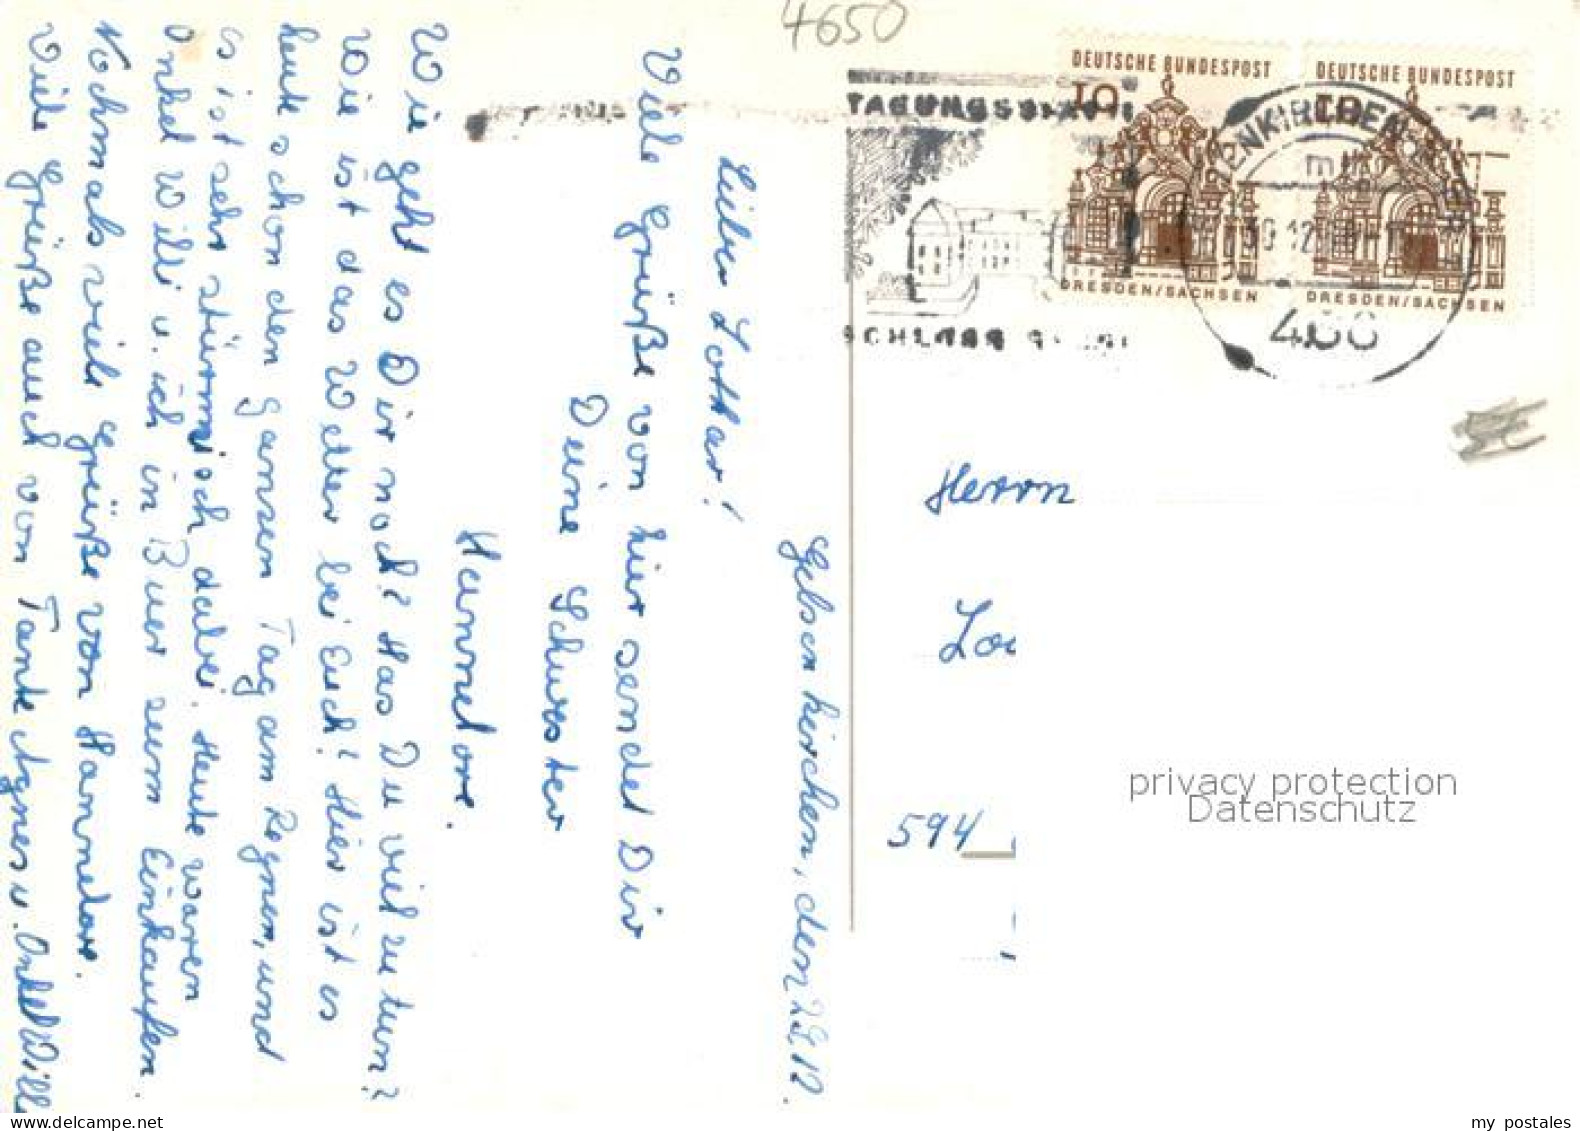 4650
Gelsenkirchen, den 29.12.
Lieber Lothar!
Viele Grüße von hier sendet Dir
Deine Schwester
Hannelore.
Wie geht es Dir noch? Has Du viel zu tun?
Wie ist das Wetter bei Euch? Hier ist es
heute schon den ganzen Tag am Regnen, und
es ist sehr stürmisch dabei. Heute waren
Onkel Willi u. ich in Buer zum Einkaufen.
Nochmals viele Grüße von Hannelore.
Viele Grüße auch von Tante Agnes u. Onkel Willi
DEUTSCHE BUNDESPOST
10
DRESDEN/SACHSEN
DEUTSCHE BUNDESPOST
10
DRESDEN/SACHSEN
ENKIRCHEN
30.12
TAGUNGSS
SCHLOSS
Herrn
594
privacy protection
Datenschutz
my postales